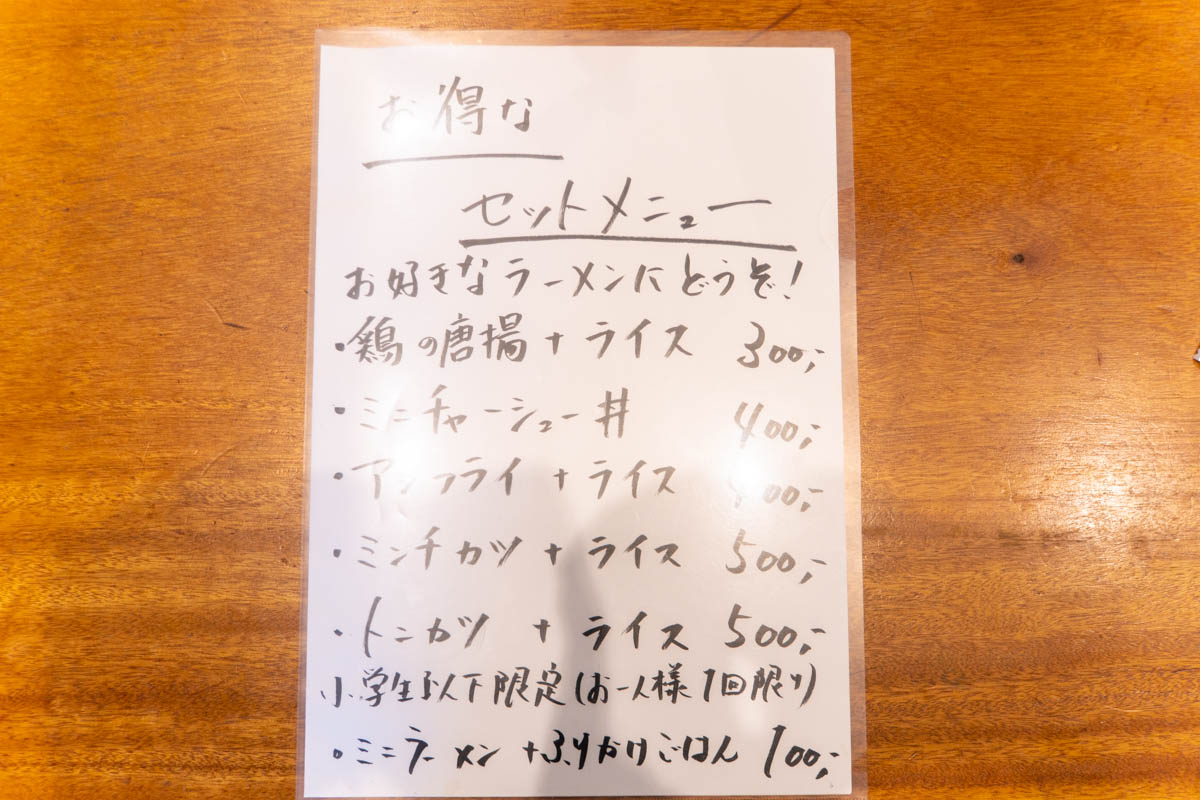 お得な
セットメニュー
お好きなラーメンにどうぞ!
・鶏の唐揚+ライス 300,-
・ミニチャーシュー丼 400,-
・アジフライ+ライス 400,-
・ミンチカツ+ライス 500,-
・トンカツ+ライス 500,-
小学生以下限定(お一人様1回限り)
・ミニラーメン+ふりかけごはん 100,-